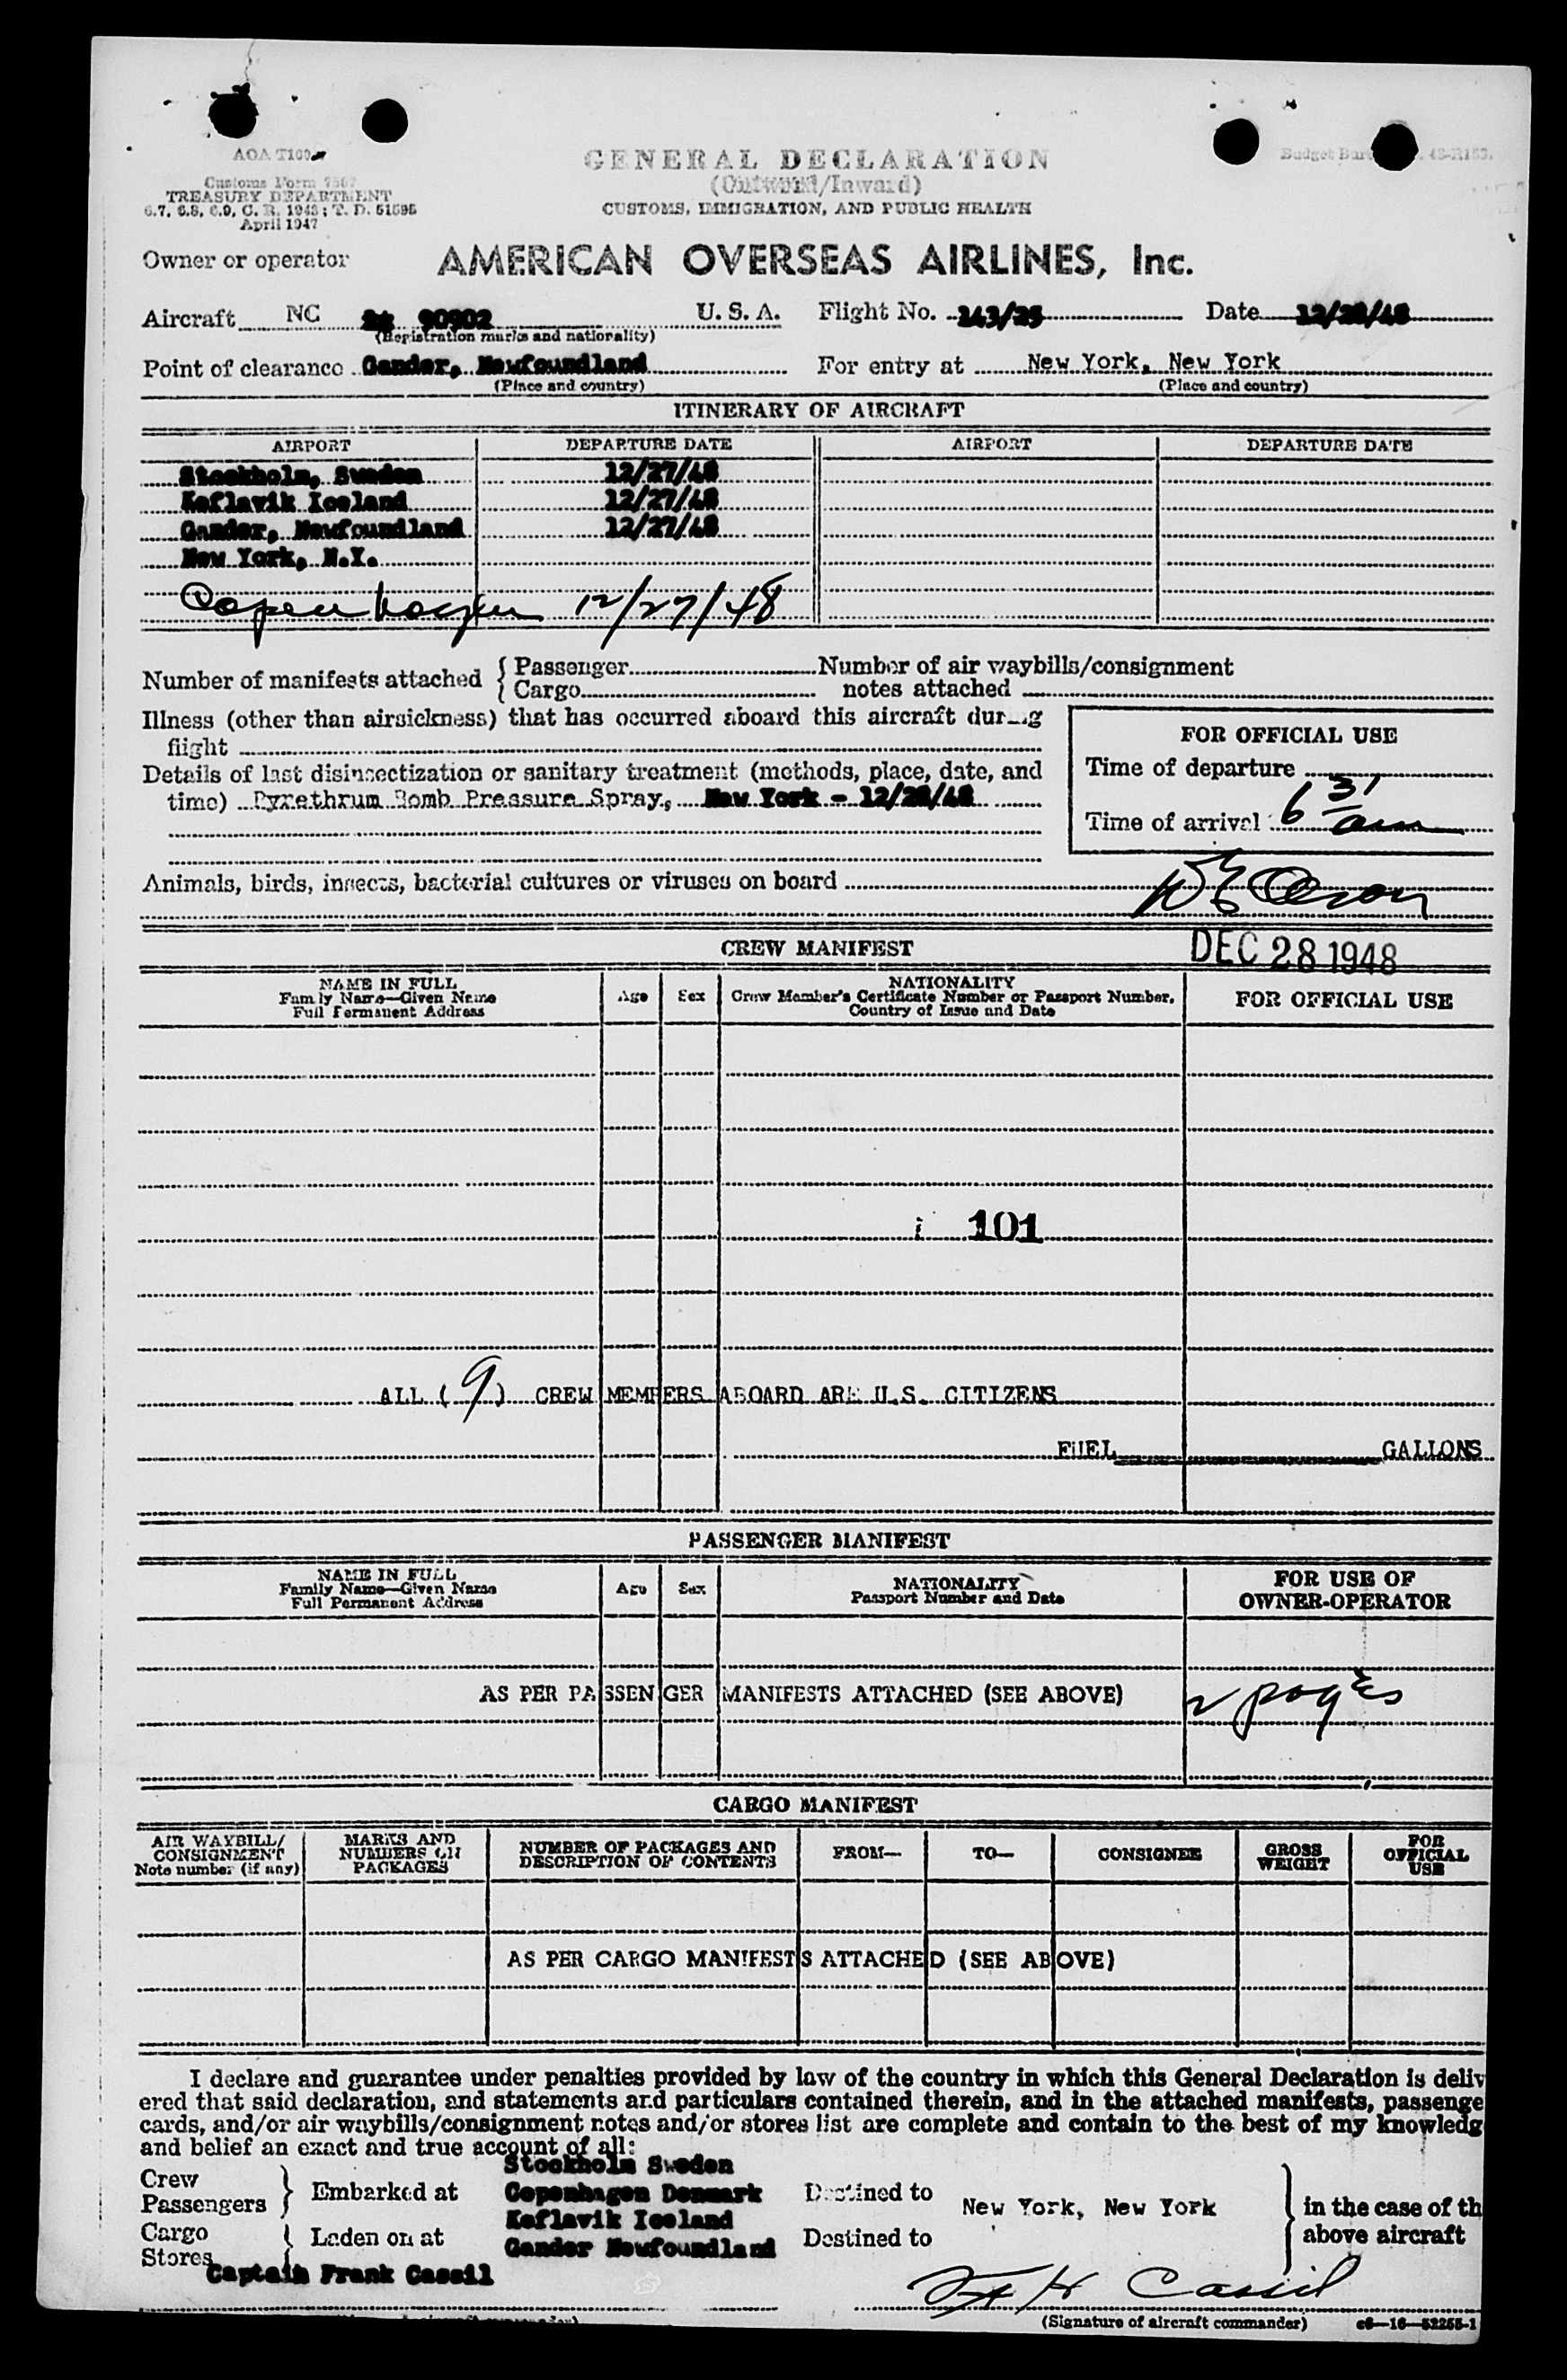 AOA T100
Customs Form 7507
TREASURY DEPARTMENT
6.7, 6.8, 6.9, C. R. 1943; T. D. 51595
April 1947
GENERAL DECLARATION
(Outward/Inward)
CUSTOMS, IMMIGRATION, AND PUBLIC HEALTH
Owner or operator AMERICAN OVERSEAS AIRLINES, Inc.
Aircraft NC 90902 U. S. A. Flight No. 143/25 Date 12/28/48
(Registration marks and nationality)
Point of clearance Gander, Newfoundland For entry at New York, New York
(Place and country) (Place and country)
ITINERARY OF AIRCRAFT
AIRPORT DEPARTURE DATE AIRPORT DEPARTURE DATE
Stockholm, Sweden 12/27/48
Keflavik Iceland 12/27/48
Gander, Newfoundland 12/27/48
New York, N.Y.
Copenhagen 12/27/48
Number of manifests attached { Passenger Number of air waybills/consignment
Cargo notes attached
Illness (other than airsickness) that has occurred aboard this aircraft during
flight
FOR OFFICIAL USE
Details of last disinsectization or sanitary treatment (methods, place, date, and
time) Pyrethrum Bomb Pressure Spray, New York - 12/28/48
Time of departure
Time of arrival 6 31 am
Animals, birds, insects, bacterial cultures or viruses on board
CREW MANIFEST
DEC 28 1948
NAME IN FULL
Family Name—Given Name
Full Permanent Address
Age Sex
NATIONALITY
Crew Member's Certificate Number or Passport Number,
Country of Issue and Date
FOR OFFICIAL USE
101
ALL ( 9 ) CREW MEMBERS ABOARD ARE U.S. CITIZENS
FUEL GALLONS
PASSENGER MANIFEST
NAME IN FULL
Family Name—Given Name
Full Permanent Address
Age Sex
NATIONALITY
Passport Number and Date
FOR USE OF
OWNER-OPERATOR
AS PER PASSENGER MANIFESTS ATTACHED (SEE ABOVE) 2 pages
CARGO MANIFEST
AIR WAYBILL/
CONSIGNMENT
Note number (if any)
MARKS AND
NUMBERS ON
PACKAGES
NUMBER OF PACKAGES AND
DESCRIPTION OF CONTENTS
FROM— TO— CONSIGNEE
GROSS
WEIGHT
FOR
OFFICIAL
USE
AS PER CARGO MANIFESTS ATTACHED (SEE ABOVE)
I declare and guarantee under penalties provided by law of the country in which this General Declaration is deliv
ered that said declaration, and statements and particulars contained therein, and in the attached manifests, passenge
cards, and/or air waybills/consignment notes and/or stores list are complete and contain to the best of my knowledg
and belief an exact and true account of all:
Crew
Passengers } Embarked at
Cargo
Stores { Laden on at
Stockholm Sweden
Copenhagen Denmark
Keflavik Iceland
Gander Newfoundland
Destined to
Destined to
New York, New York
in the case of th
above aircraft
Captain Frank Cassil
Cassil
(Signature of aircraft commander) c6—16—52255-1